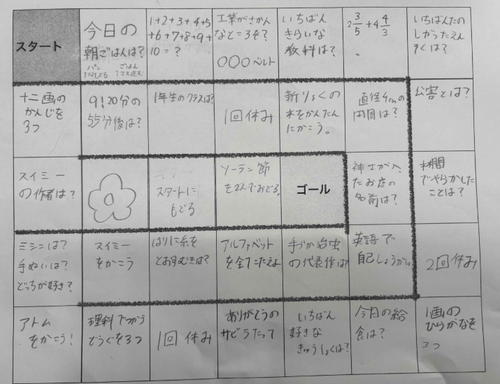 スタート
今日の
朝ごはんは?
パン ごはん
1+2+3+4+5
+6+7+8+9+
10=?
工業がさかん
なところは?
○○○ベルト
いちばん
きらいな
教科は?
2 3/5 + 4 4/3
いちばんたの
しかったえん
そくは?
十二画の
かんじを
3つ
9:20分の
55分後は?
1年生のクラスは?
1回休み
新りょくの
木をかんたん
にかこう。
直径4cmの
円周は?
公害とは?
スイミー
の作者は?
スタートに
もどる
ソーラン節
をよんでおどる
ゴール
たお店の
名前は?
でやらかした
ことは?
ミシンは?
手ぬいは?
どっちが好き?
スイミー
をかこう
はりに糸を
とおすむきは?
アルファベット
を全てこたえよ
手づか治虫
の代表作は?
英語で
自己しょうかい。
2回休み
アトム
をかこう!
理科でつかう
どうぐを3つ
1回休み
ありがとうの
サビうたって
いちばん
好きな
きゅうしょくは?
今日の給
食は?
1画の
ひらがなを
3つ